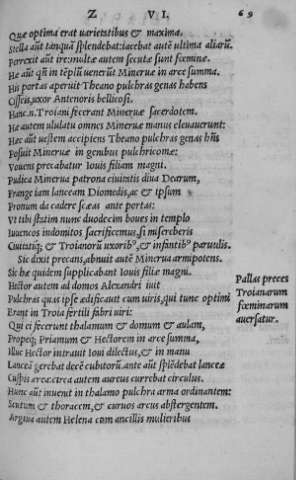 Z VI. 69
Quæ optima erat uarietatibus & maxima.
Stella aũt tanquã splendebat: iacebat autẽ ultima aliarũ.
Porrexit aũt ire: multæ autem secutæ sunt fœminæ.
Hæ aũt qñ in tẽplũ uenerũt Mineruæ in arce summa.
His portas aperuit Theano pulchras genas habens
Cisseis, uxor Antenoris bellicosi.
Hanc.n. Troiani fecerant Mineruæ sacerdotem.
Hæ autem ululatu omnes Mineruæ manus eleuauerunt:
Hæc aũt uestem accipiens Theano pulchras genas hñs
Posuit Mineruæ in genibus pulchricomæ:
Vouens precabatur Iouis filiam magni.
Pudica Minerua patrona ciuitatis diua Dearum,
Frange iam lanceam Diomedis, ac & ipsum
Pronum da cadere scæas ante portas:
Vt tibi statim nunc duodecim boues in templo
Iuuencos indomitos sacrificemus, si misereberis
Ciuitatisq; & Troianorũ uxoribꝰ, & infantibꝰ paruulis.
Sic dixit precans, abnuit autẽ Minerua armipotens.
Sic hæ quidem supplicabant Iouis filiæ magni.
Hector autem ad domos Alexandri iuit
Pulchras quas ipse ædificauit cum uiris, qui tunc optimi
Erant in Troia fertili fabri uiri:
Qui ei fecerunt thalamum & domum & aulam,
Propeq; Priamum & Hectorem in arce summa,
Illuc Hector intrauit Ioui dilectus, & in manu
Lanceã gerebat decẽ cubitorũ. ante aũt splẽdebat lanceæ
Cuspis ærea: circa autem aureus currebat circulus.
Hunc aũt inuenit in thalamo pulchra arma ordinantem:
Scutum & thoracem, & curuos arcus abstergentem.
Argiua autem Helena cum ancillis mulieribus
Pallas preces
Troianarum
fœminarum
auersatur.